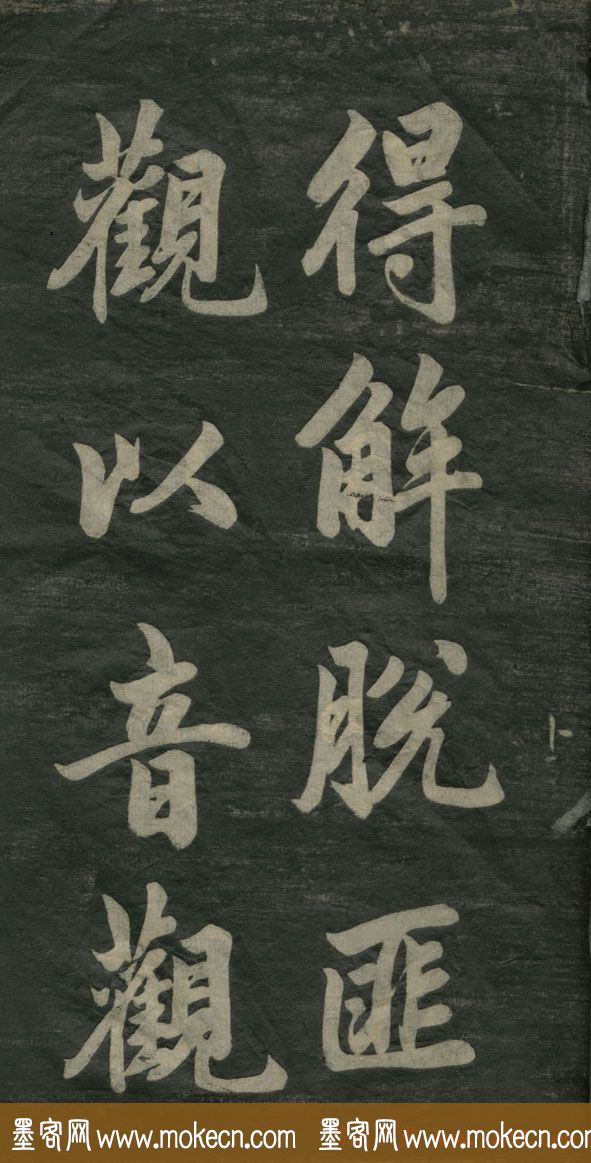 得解脫匪
觀以音觀
墨客网 www.mokecn.com 墨客网 www.mokecn.com